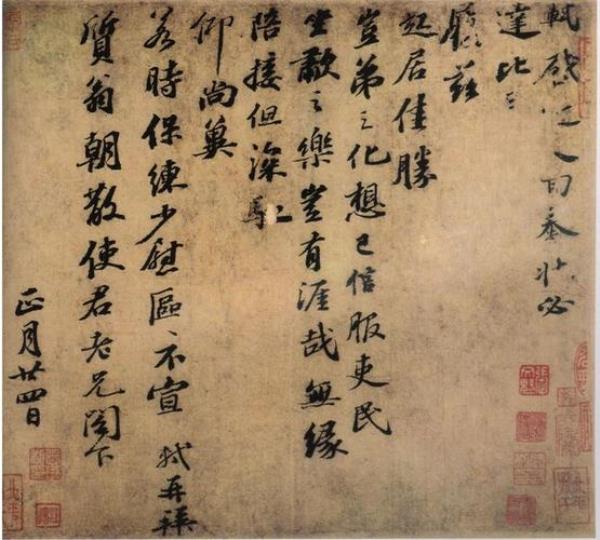 軾啓近人回奉狀必
達比日
履茲
起居佳勝
豈弟之化想已信服吏民
坐嘯之樂豈有涯哉無緣
陪接但深馳
仰尚冀
若時保練少慰區〻不宣 軾再拜
質翁朝散使君老兄閤下
正月廿四日